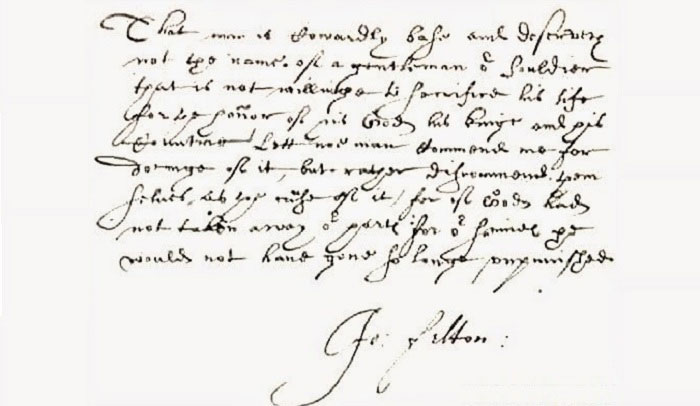 That man is Cowardly base and deserveth
not the name of a gentleman or Souldier
that is not willinge to sacrifice his life
for the honor of his God his Kinge and his
Countrie Lett noe man Commend me for
doeinge of it, but rather discommend them
selves as the cause of it, for if God had
not taken away or harts for or sinnes he
would not have gone so longe unpunished
Jo: Felton: